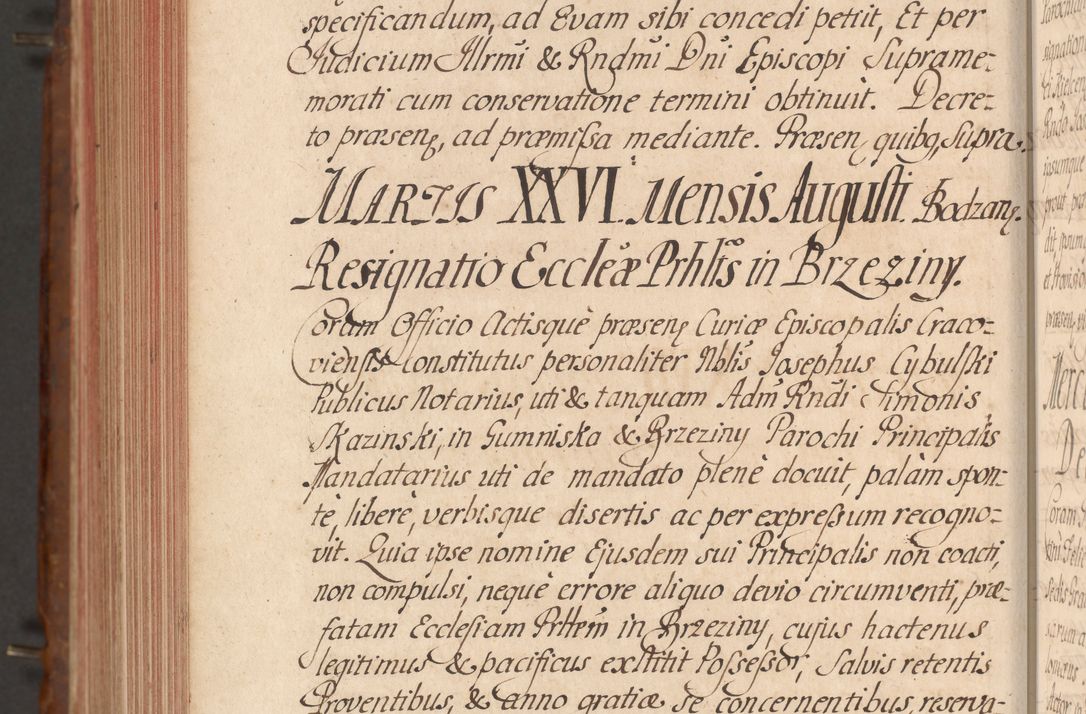 specificandum, ad Evam sibi concedi petiit, Et per
Judicium Illrmi & Rndmi Dni Episcopi Suprame-
morati cum conservatione termini obtinuit. Decre-
to præsen, ad præmissa mediante. Præsen quibq, Supra.
MARTIS XXVI. Mensis Augusti. Bodzan.
Resignatio Eccleæ Prhlis in Brzeziny.
Coram Officio Actisquè præsen Curiæ Episcopalis Craco-
viensis Constitutus personaliter Nblis Josephus Cybulski
Publicus Notarius, uti & tanquam Adm Rndi Simonis
Skazinski, in Gumniska & Brzeziny Parochi Principalis
Mandatarius uti de mandato plenè docuit, palàm spon-
tè, liberè, verbisque disertis ac per expressum recogno-
vit. Quia ipse nomine Ejusdem sui Principalis non coacti,
non compulsi, nequè errore aliquo devio circumventi, præ-
fatam Ecclesiam Prhlem in Brzeziny, cujus hactenus
legitimus & pacificus exstitit Possessor, Salvis retentis
Proventibus, & anno gratiæ se concernentibus, reserva-